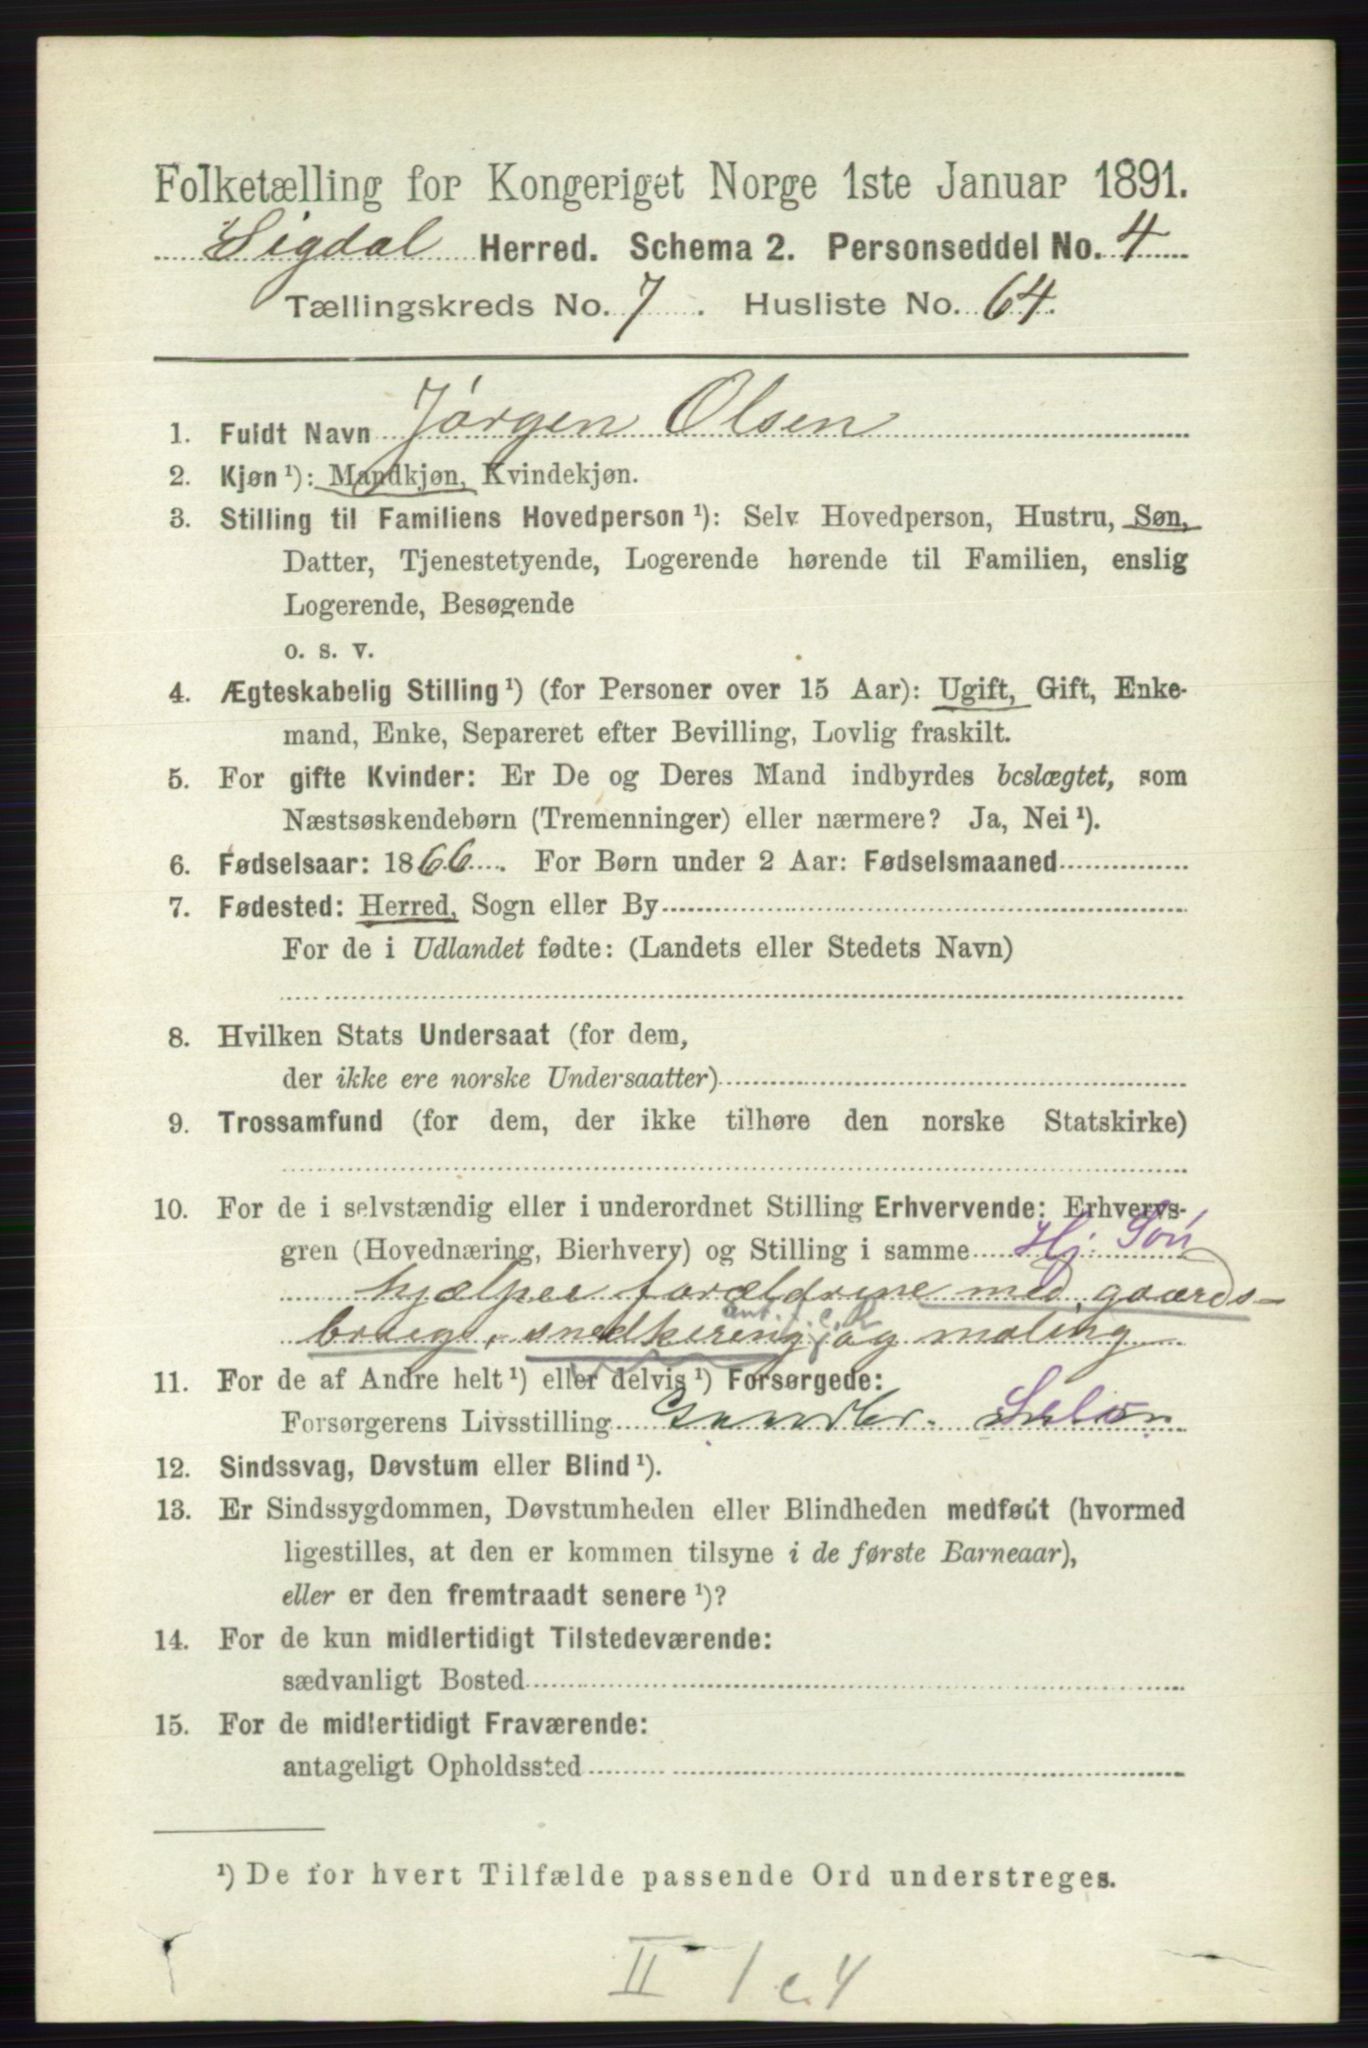 Folketælling for Kongeriget Norge 1ste Januar 1891.
Sigdal Herred. Schema 2. Personseddel No. 4
Tællingskreds No. 7. Husliste No. 64.
1. Fuldt Navn Jørgen Olsen
2. Kjøn ¹): Mandkjøn, Kvindekjøn.
3. Stilling til Familiens Hovedperson ¹): Selv Hovedperson, Hustru, Søn,
Datter, Tjenestetyende, Logerende hørende til Familien, enslig
Logerende, Besøgende
o. s. v.
4. Ægteskabelig Stilling ¹) (for Personer over 15 Aar): Ugift, Gift, Enke-
mand, Enke, Separeret efter Bevilling, Lovlig fraskilt.
5. For gifte Kvinder: Er De og Deres Mand indbyrdes beslægtet, som
Næstsøskendebørn (Tremenninger) eller nærmere? Ja, Nei ¹).
6. Fødselsaar: 1866. For Børn under 2 Aar: Fødselsmaaned
7. Fødested: Herred, Sogn eller By
For de i Udlandet fødte: (Landets eller Stedets Navn)
8. Hvilken Stats Undersaat (for dem,
der ikke ere norske Undersaatter)
9. Trossamfund (for dem, der ikke tilhøre den norske Statskirke)
10. For de i selvstændig eller i underordnet Stilling Erhvervende: Erhvervs-
gren (Hovednæring, Bierhverv) og Stilling i samme Hj. Søn
hjælper forældrene med gaards-
brugs, snedkering og maling
11. For de af Andre helt ¹) eller delvis ¹) Forsørgede:
Forsørgerens Livsstilling Gaardbr. Selv
12. Sindssvag, Døvstum eller Blind ¹).
13. Er Sindssygdommen, Døvstumheden eller Blindheden medfødt (hvormed
ligestilles, at den er kommen tilsyne i de første Barneaar),
eller er den fremtraadt senere ¹)?
14. For de kun midlertidigt Tilstedeværende:
sædvanligt Bosted
15. For de midlertidigt Fraværende:
antageligt Opholdssted
¹) De for hvert Tilfælde passende Ord understreges.
II 1 c. 4